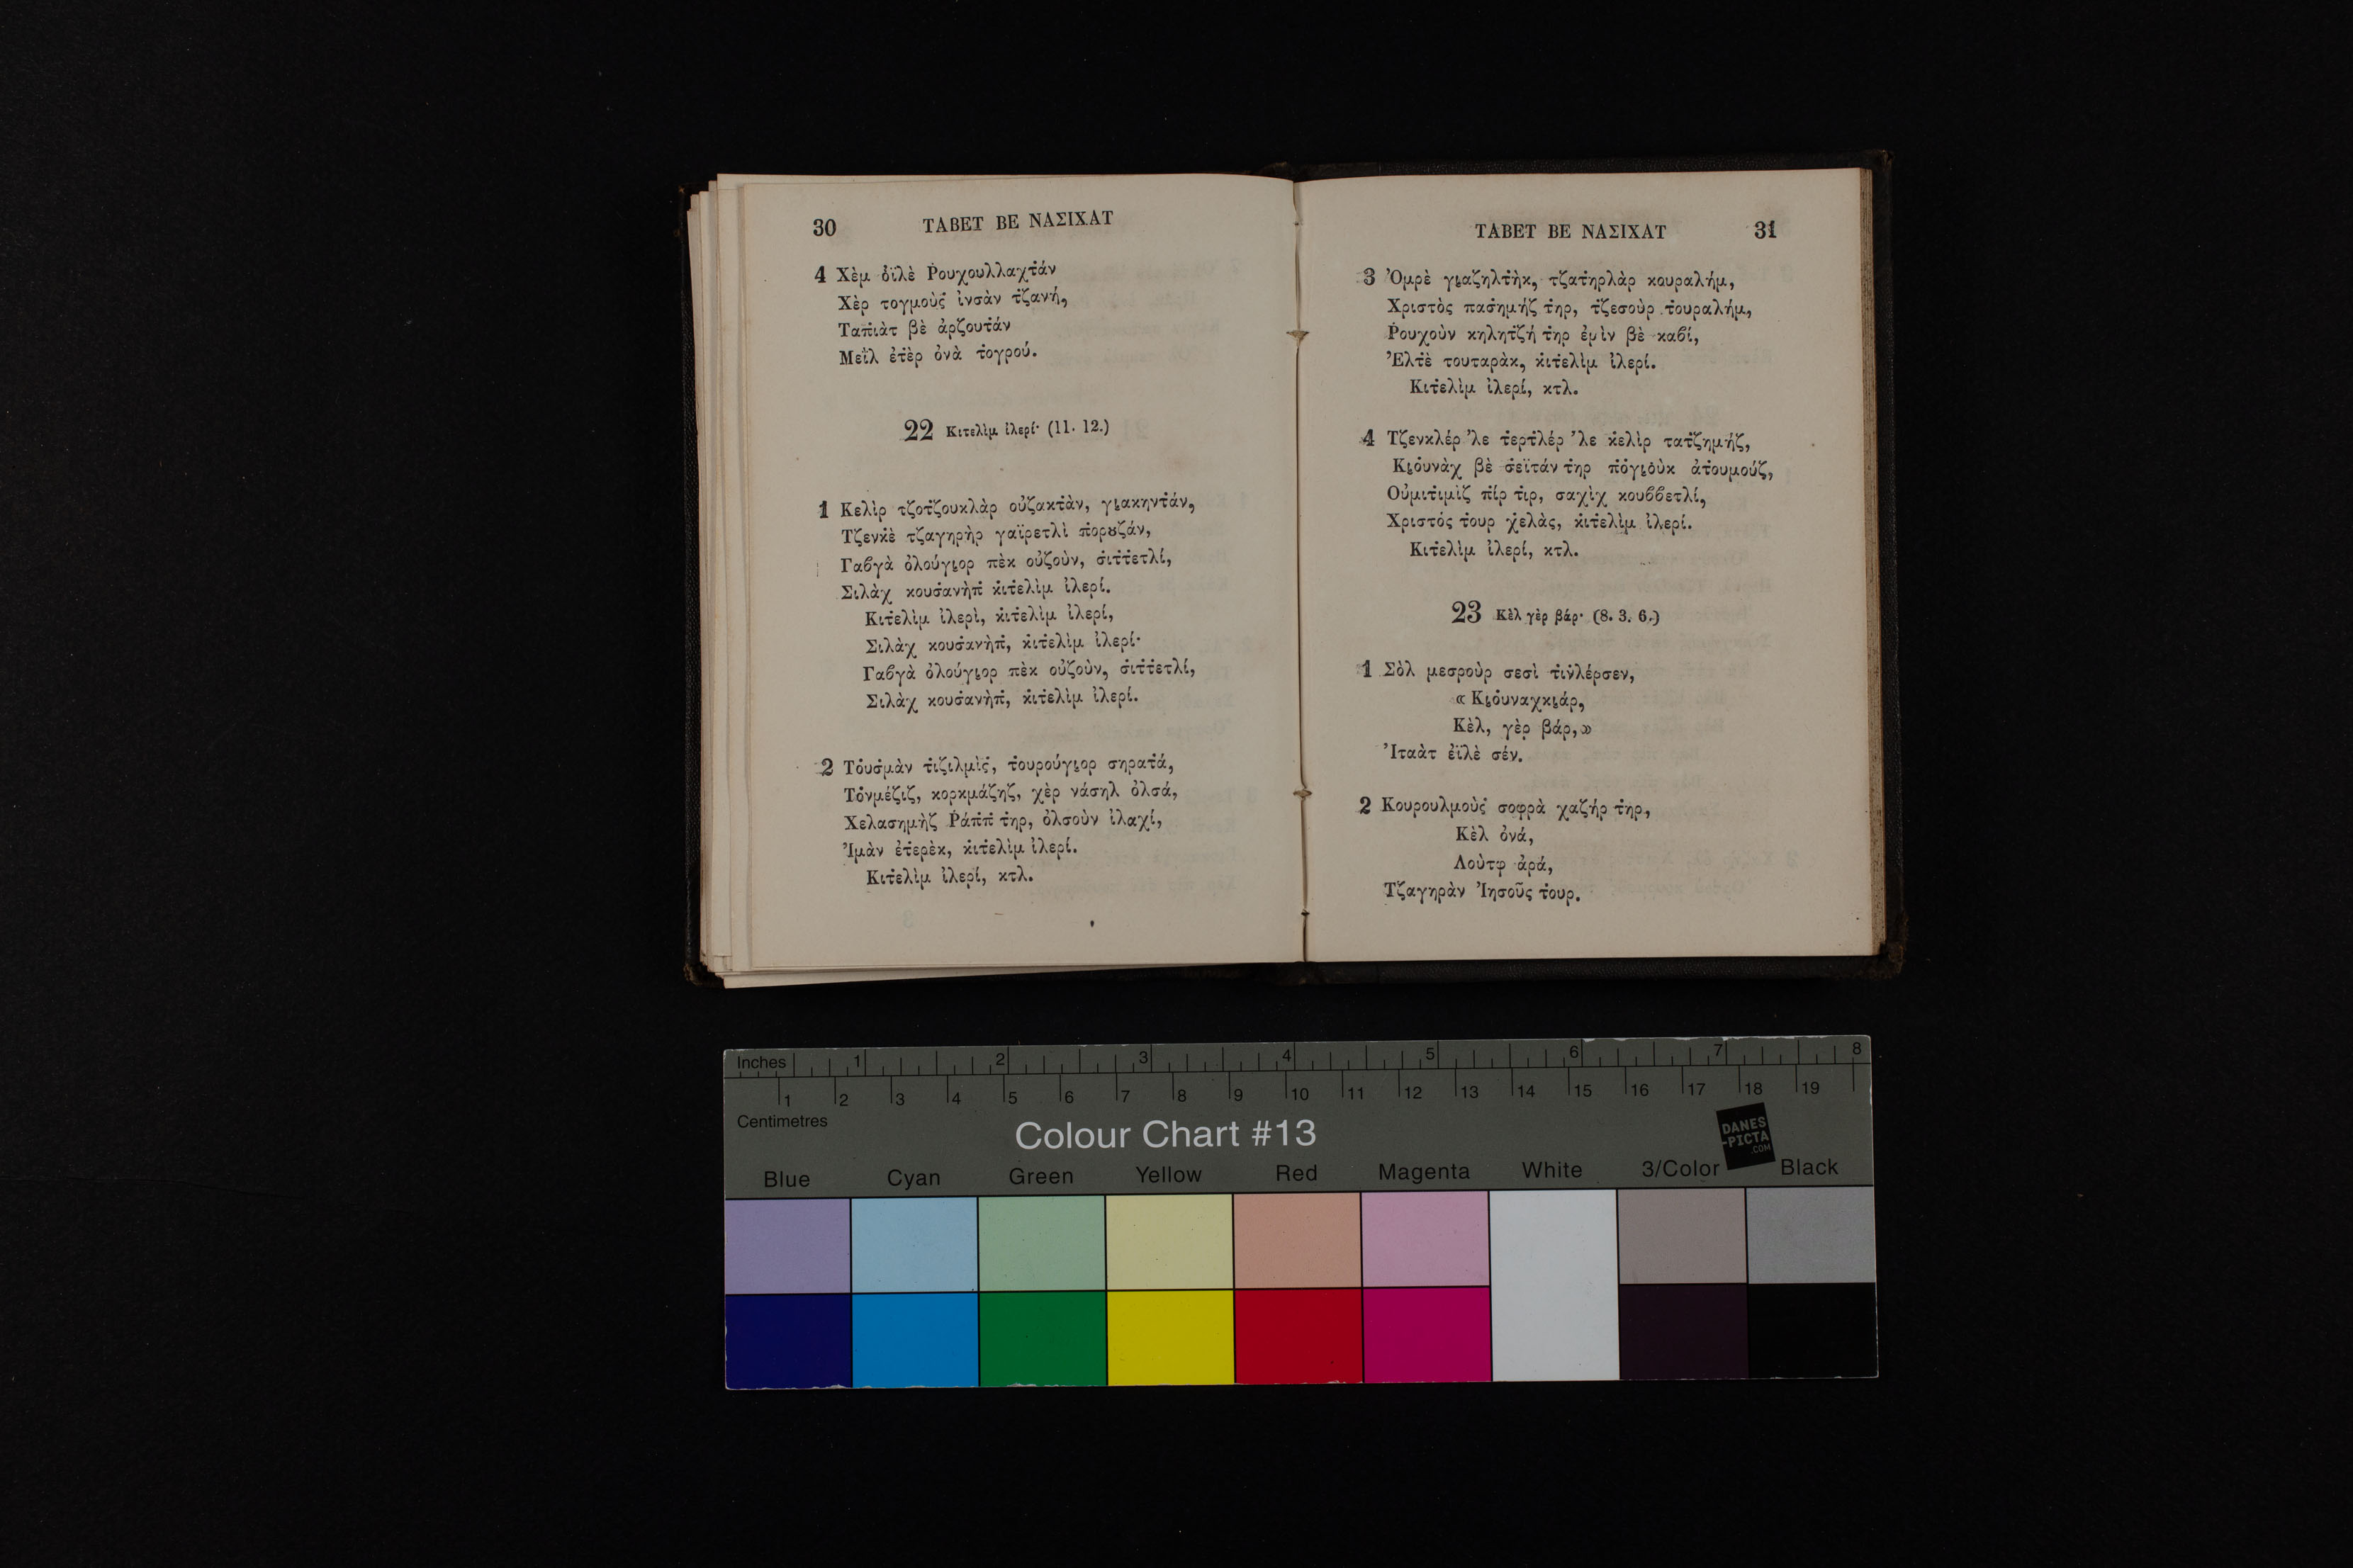 30 ΤΑΒΕΤ ΒΕ ΝΑΣΙΧΑΤ
4 Χὲμ ὀϊλὲ Ῥουχουλλαχτ̇άν
Χὲρ τογμοὺς̇ ἰνσὰν τ̇ζανή,
Ταπ̇ιὰτ βὲ ἀρζουτ̇άν
Μεῒλ ἐτ̇ὲρ ὀνὰ τ̇ογρού.
22 Κιτελὶμ ἰλερί· (11. 12.)
1 Κελὶρ τζοτ̇ζουκλὰρ οὐζακτ̇ὰν, γιακηντ̇άν,
Τζενκ̇ὲ τζαγηρὴρ γαϊρετλὶ π̇ορȣζάν,
Γαϐγὰ ὀλούγιορ πὲκ οὐζοὺν, σ̇ιτ̇τ̇ετλί,
Σιλὰχ κουσ̇ανὴπ̇ κ̇ιτ̇ελὶμ ἰλερί.
Κιτ̇ελὶμ ἰλερὶ, κ̇ιτ̇ελὶμ ἰλερί,
Σιλὰχ κουσ̇ανὴπ̇, κ̇ιτ̇ελὶμ ἰλερί·
Γαϐγὰ ὀλούγιορ πὲκ οὐζοὺν, σ̇ιτ̇τ̇ετλί,
Σιλὰχ κουσ̇ανὴπ̇, κ̇ιτ̇ελὶμ ἰλερί.
2 Τὀυσ̇μὰν τ̇ιζιλμὶς̇, τ̇ουρούγιορ σηρατ̇ά,
Τὀνμέζιζ, κορκμάζηζ, χὲρ νάσηλ ὀλσά,
Χελασημὴζ Ῥάπ̇π̇ τ̇ηρ, ὀλσοὺν ἰλαχί,
Ἰμὰν ἐτ̇ερὲκ, κ̇ιτ̇ελὶμ ἰλερί.
Κιτ̇ελὶμ ἰλερί, κτλ.
ΤΑΒΕΤ ΒΕ ΝΑΣΙΧΑΤ 31
3 Ὀμρὲ γιαζηλτ̇ὴκ, τζατ̇ηρλὰρ κουραλήμ,
Χριστὸς πασ̇ημήζ τ̇ηρ, τ̇ζεσοὺρ τ̇ουραλήμ,
Ῥουχοὺν κηλητ̇ζή τ̇ηρ ἐμὶν βὲ καϐί,
Ἐλτ̇ὲ τουταρὰκ, κ̇ιτ̇ελὶμ ἰλερί.
Κιτ̇ελὶμ ἰλερί, κτλ.
4 Τζενκλέρ ’λε τ̇ερτ̇λέρ ’λε κ̇ελὶρ τατ̇ζημήζ,
Κιὀυνὰχ βὲ σ̇εϊτάν τ̇ηρ π̇ὀγιὀὺκ ἀτ̇ουμούζ,
Οὐμιτ̇ιμὶζ π̇ίρ τ̇ιρ, σαχὶχ κουϐϐετλί,
Χριστός τ̇ουρ χ̇ελὰς, κ̇ιτ̇ελὶμ ἰλερί.
Κιτ̇ελὶμ ἰλερί, κτλ.
23 Κὲλ γὲρ βάρ· (8. 3. 6.)
1 Σὸλ μεσρούρ σεσὶ τ̇ιν̇λέρσεν,
« Κιὀυναχκιάρ,
Κὲλ, γὲρ βάρ,»
Ἰταὰτ ἐϊλὲ σέν.
2 Κουρουλμοὺς̇ σοφρὰ χαζήρ τ̇ηρ,
Κὲλ ὀνά,
Λοὺτφ ἀρά,
Τζαγηρὰν Ἰησοῦς τ̇ουρ.
Inches 1 2 3 4 5 6 7 8
1 2 3 4 5 6 7 8 9 10 11 12 13 14 15 16 17 18 19
Centimetres
Colour Chart #13
DANES
-PICTA
.COM
Blue Cyan Green Yellow Red Magenta White 3/Color Black